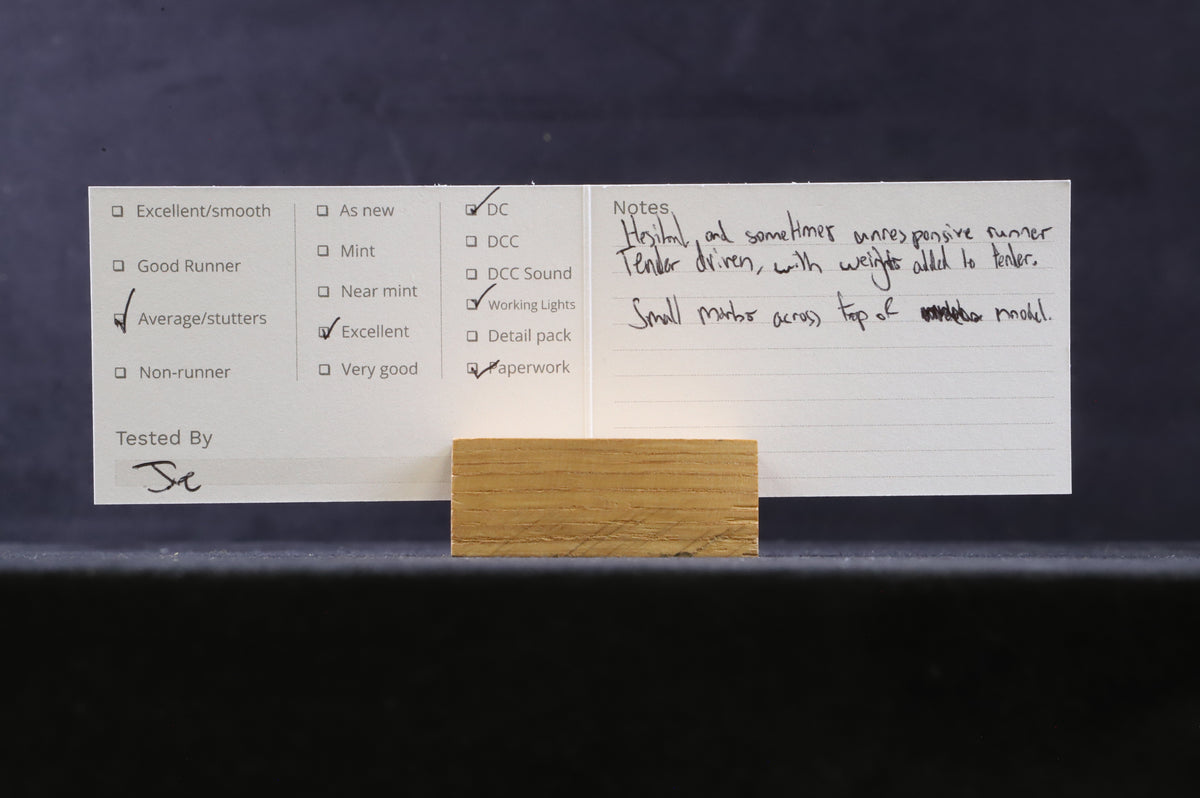 Excellent/smooth
Good Runner
Average/stutters
Non-runner
As new
Mint
Near mint
Excellent
Very good
DC
DCC
DCC Sound
Working Lights
Detail pack
Paperwork
Tested By
Joe
Notes
Hesitant, and sometimes unresponsive runner
Tender driven, with weights added to tender.
Small marks across top of model.